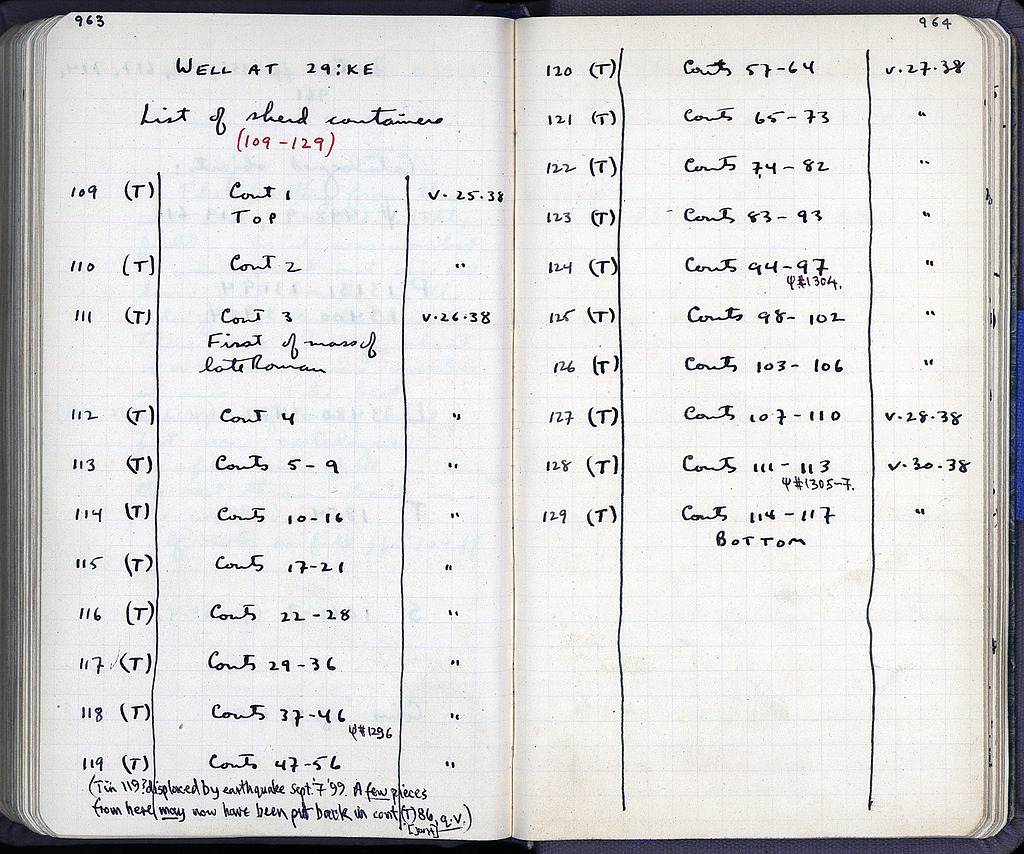 963
WELL AT 29:KE
List of sherd containers
(109-129)
109 (T) Cont 1 v.25.38
TOP
110 (T) Cont 2 "
111 (T) Cont 3 v.26.38
First of mass of
late Roman
112 (T) Cont 4 "
113 (T) Conts 5-9 "
114 (T) Conts 10-16 "
115 (T) Conts 17-21 "
116 (T) Conts 22-28 "
117 (T) Conts 29-36 "
118 (T) Conts 37-46 "
ψ#1296
119 (T) Conts 47-56 "
(T in 119? displaced by earthquake Sept. '7 '99. A few pieces
from here may now have been put back in cont (T) 86, q.v.)
964
120 (T) Conts 57-64 v.27.38
121 (T) Conts 65-73 "
122 (T) Conts 74-82 "
123 (T) Conts 83-93 "
124 (T) Conts 94-97 "
ψ#1304.
125 (T) Conts 98-102 "
126 (T) Conts 103-106 "
127 (T) Conts 107-110 v.28.38
128 (T) Conts 111-113 v.30.38
ψ#1305-7.
129 (T) Conts 114-117 "
BOTTOM